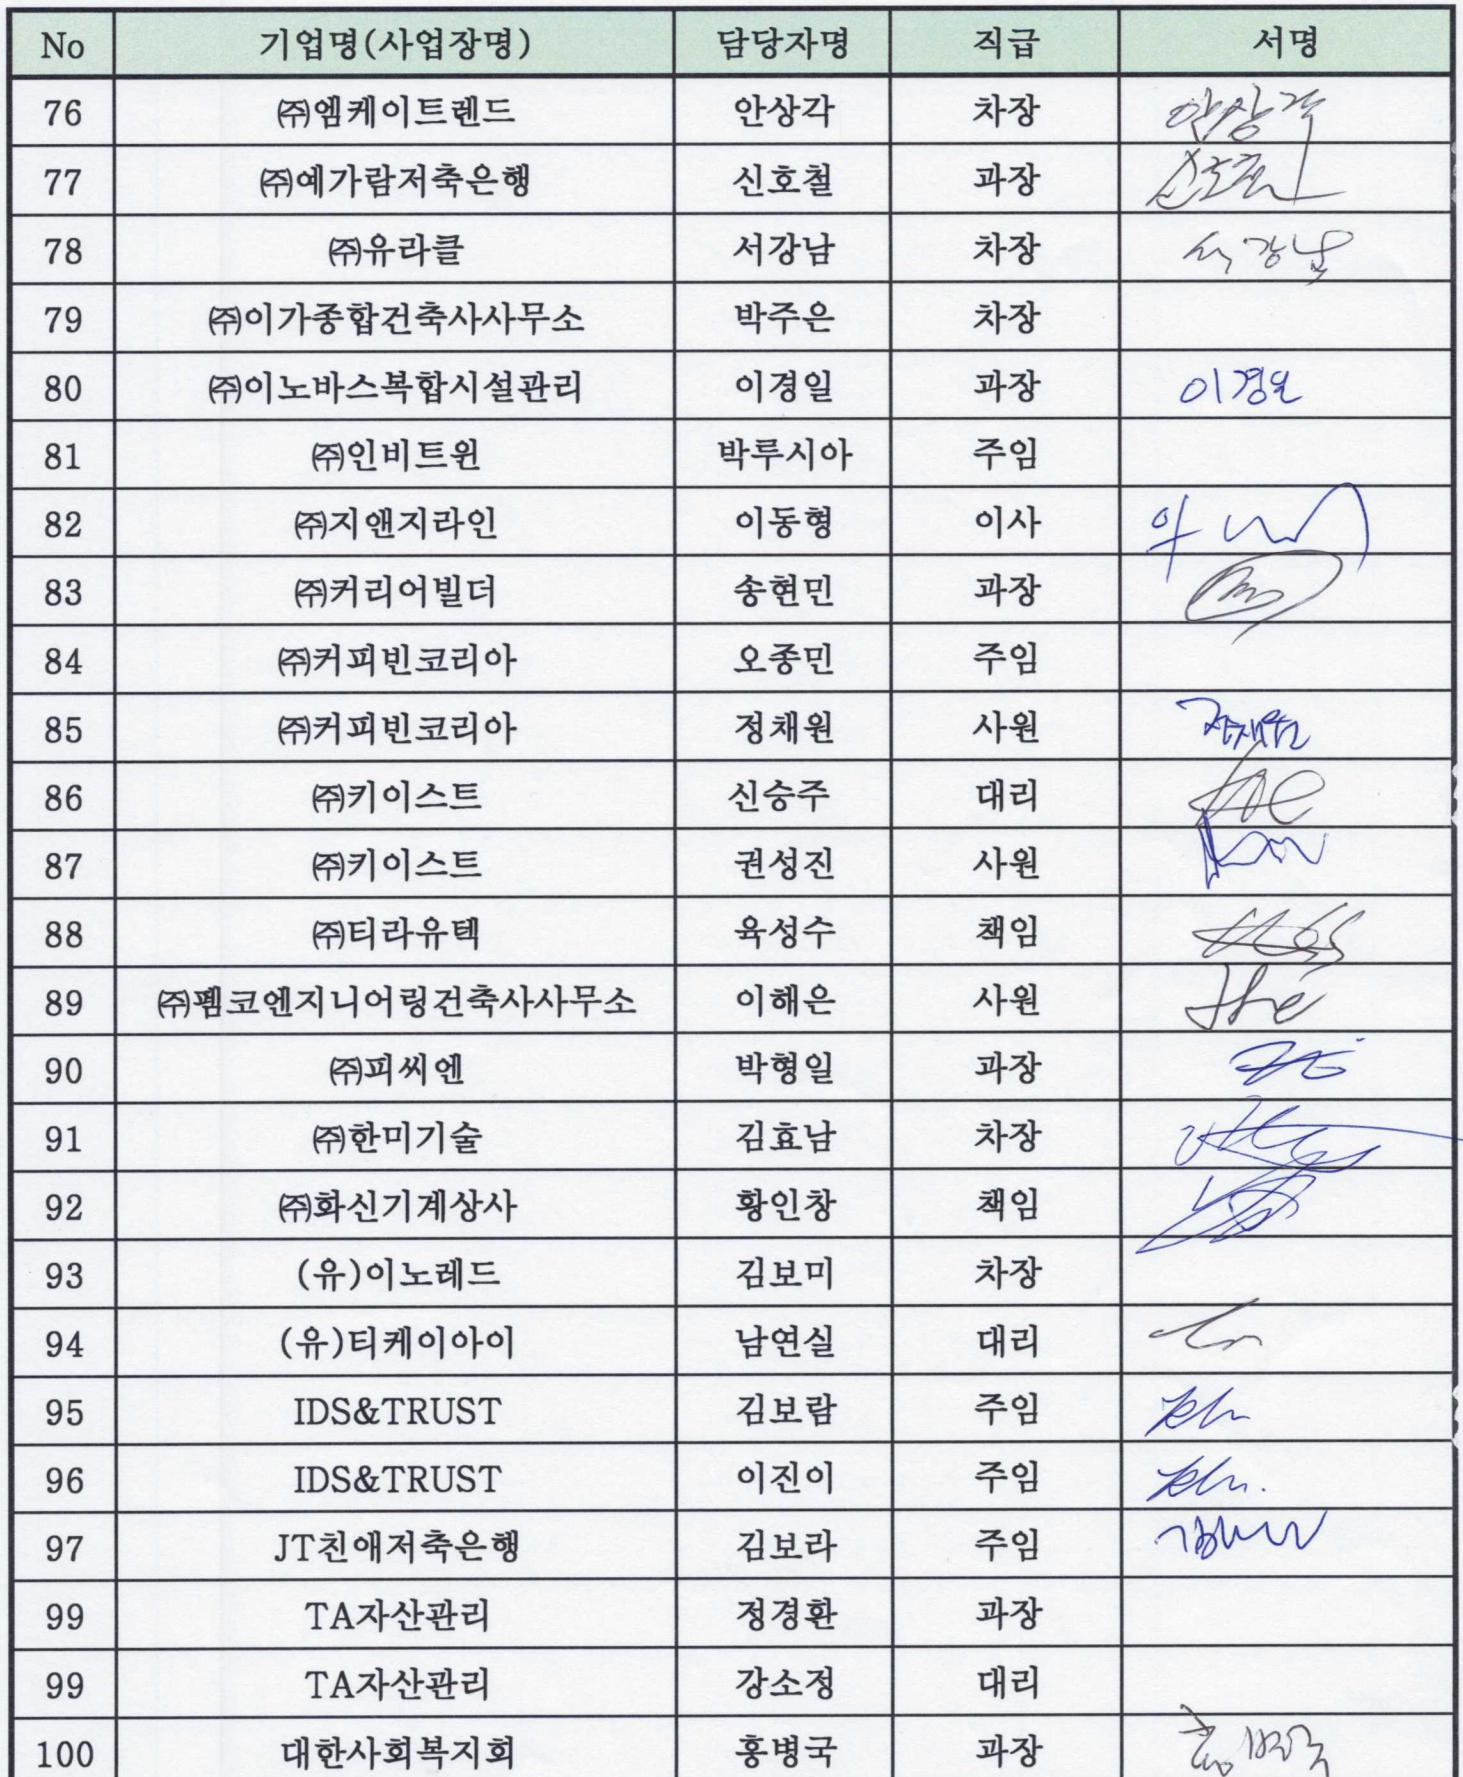 No 기업명(사업장명) 담당자명 직급 서명
76 ㈜엠케이트렌드 안상각 차장 안상각
77 ㈜예가람저축은행 신호철 과장
78 ㈜유라클 서강남 차장 서강남
79 ㈜이가종합건축사사무소 박주은 차장
80 ㈜이노바스복합시설관리 이경일 과장 이경일
81 ㈜인비트윈 박루시아 주임
82 ㈜지앤지라인 이동형 이사
83 ㈜커리어빌더 송현민 과장
84 ㈜커피빈코리아 오종민 주임
85 ㈜커피빈코리아 정채원 사원 정채원
86 ㈜키이스트 신승주 대리
87 ㈜키이스트 권성진 사원
88 ㈜티라유텍 육성수 책임
89 ㈜펨코엔지니어링건축사사무소 이해은 사원
90 ㈜피씨엔 박형일 과장
91 ㈜한미기술 김효남 차장
92 ㈜화신기계상사 황인창 책임
93 (유)이노레드 김보미 차장
94 (유)티케이아이 남연실 대리
95 IDS&TRUST 김보람 주임
96 IDS&TRUST 이진이 주임
97 JT친애저축은행 김보라 주임
99 TA자산관리 정경환 과장
99 TA자산관리 강소정 대리
100 대한사회복지회 홍병국 과장 홍병국